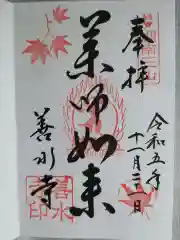 奉拝
薬師如来
令和五年
十一月二一日
善水寺